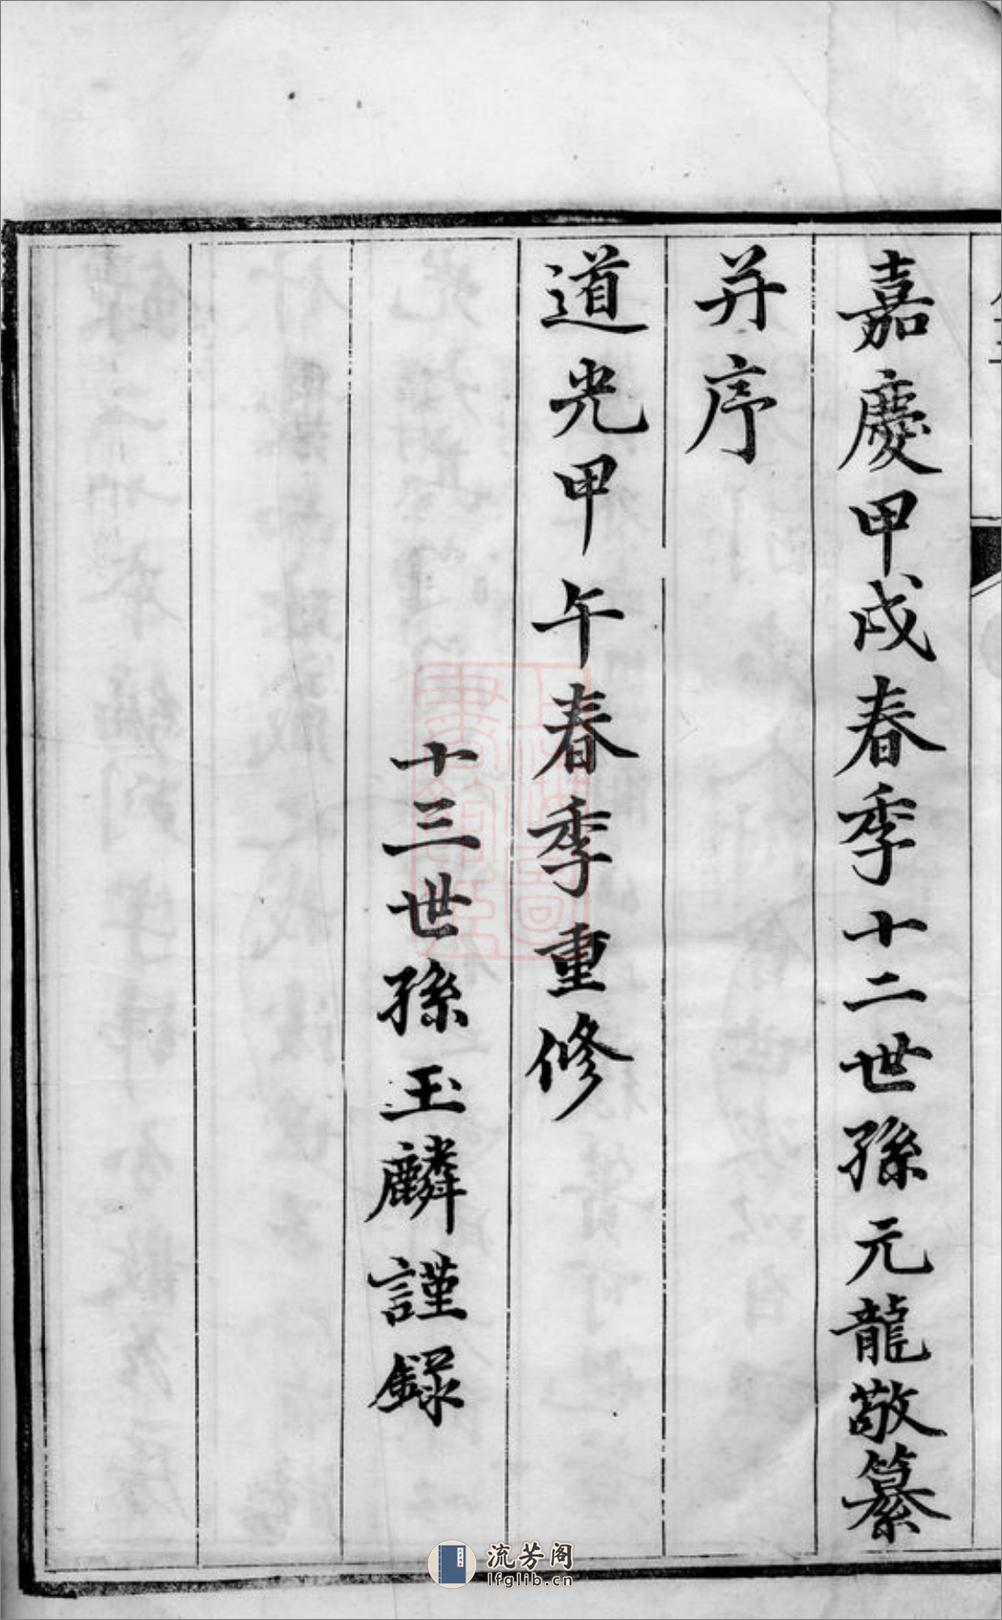 嘉慶甲戌春季十二世孫元龍敬纂
并序
道光甲午春季重修
十三世孫玉麟謹録
流芳阁
lfglib.cn